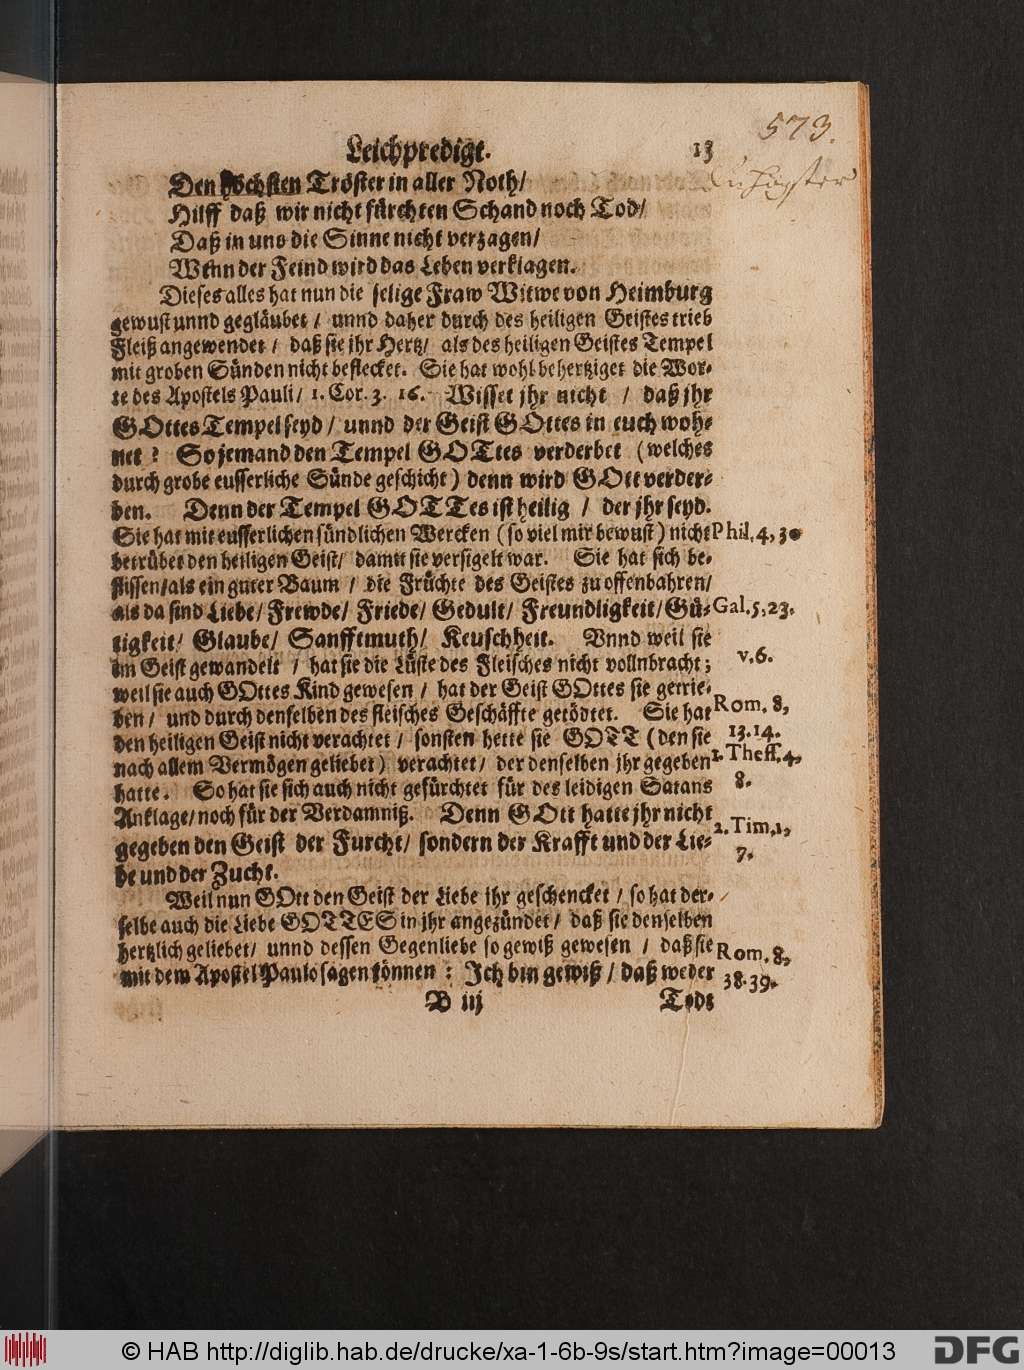 573.
Leichpredigt. 13
Den höchsten Tröster in aller Noth/
Hilff daß wir nicht fürchten Schand noch Tod/
Daß in uns die Sinne nicht verzagen/
Wenn der Feind wird das Leben verklagen.
Dieses alles hat nun die selige Fraw Witwe von Heimburg
gewust unnd gegläubet / unnd daher durch des heiligen Geistes trieb
Fleiß angewendet / daß sie jhr Hertz/ als des heiligen Geistes Tempel
mit groben Sünden nicht beflecket. Sie hat wohl behertziget die Wor-
te des Apostels Pauli/ 1. Cor. 3. 16. Wisset jhr nicht / daß jhr
GOttes Tempel seyd / unnd der Geist GOttes in euch woh-
net ? So jemand den Tempel GOTtes verderbet (welches
durch grobe eusserliche Sünde geschicht) denn wird GOtt verder-
ben. Denn der Tempel GOTTes ist heilig / der jhr seyd.
Sie hat mit eusserlichen sündlichen Wercken (so viel mir bewust) nicht Phil. 4, 30
betrübet den heiligen Geist/ damit sie versigelt war. Sie hat sich be-
flissen/als ein guter Baum / die Früchte des Geistes zu offenbahren/
als da sind Liebe/ Frewde/ Friede/ Gedult/ Freundligkeit/ Gü- Gal. 5, 23.
tigkeit/ Glaube/ Sanfftmuth/ Keuschheit. Vnnd weil sie
im Geist gewandelt / hat sie die Lüste des Fleisches nicht vollnbracht; v. 6.
weil sie auch GOttes Kind gewesen / hat der Geist GOttes sie getrie-
ben / und durch denselben des fleisches Geschäffte getödtet. Sie hat Rom. 8,
den heiligen Geist nicht verachtet / sonsten hette sie GOTT (den sie 13. 14.
nach allem Vermögen geliebet) verachtet/ der denselben jhr gegeben 1. Thess. 4,
hatte. So hat sie sich auch nicht gefürchtet für des leidigen Satans 8.
Anklage/ noch für der Verdamniß. Denn GOtt hatte jhr nicht
gegeben den Geist der Furcht/ sondern der Krafft und der Lie- 2. Tim. 1,
be und der Zucht. 7.
Weil nun GOtt den Geist der Liebe jhr geschencket / so hat der-
selbe auch die Liebe GOTTES in jhr angezündet / daß sie denselben
hertzlich geliebet/ unnd dessen Gegenliebe so gewiß gewesen / daß sie Rom. 8,
mit dem Apostel Paulo sagen können : Ich bin gewiß / daß weder 38. 39.
B iij Tods
© HAB http://diglib.hab.de/drucke/xa-1-6b-9s/start.htm?image=00013
DFG